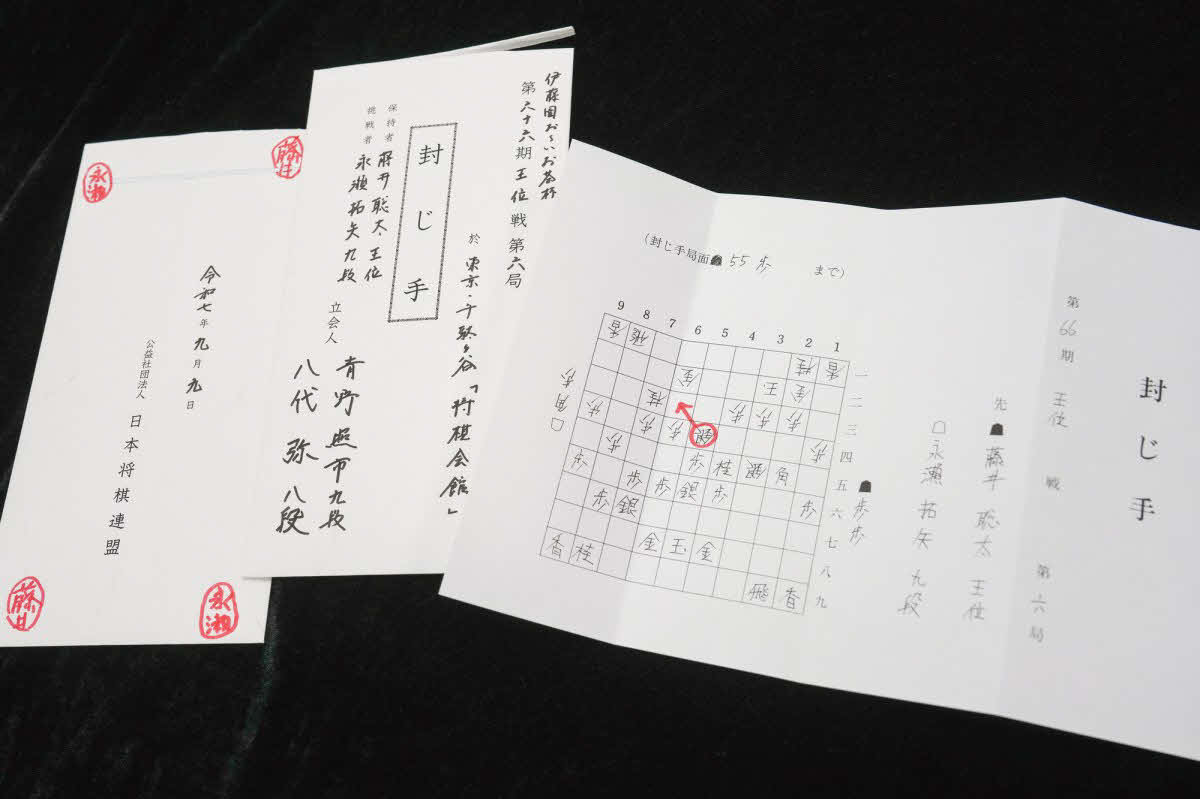 伊藤園お〜いお茶杯
第六十六期王位戦第六局
於 東京・千駄ヶ谷「将棋会館」
封じ手
保持者 藤井聡太王位
挑戦者 永瀬拓矢九段
立会人 青野照市九段
八代弥八段
永瀬
藤井
令和七年九月九日
公益社団法人 日本将棋連盟
藤井
永瀬
封じ手
第66期 王位戦 第六局
先☗藤井聡太王位
☖永瀬拓矢九段
(封じ手局面☗55歩まで)
9 8 7 6 5 4 3 2 1
香 飛 桂 香 一
金 王 金 二
桂 歩 歩 歩 三
歩 歩 歩 銀 歩 四
歩 歩 桂 銀 角 五
歩 歩 歩 銀 歩 歩 六
歩 銀 七
金 玉 金 八
香 桂 飛 香 九
☗歩歩
☖角歩